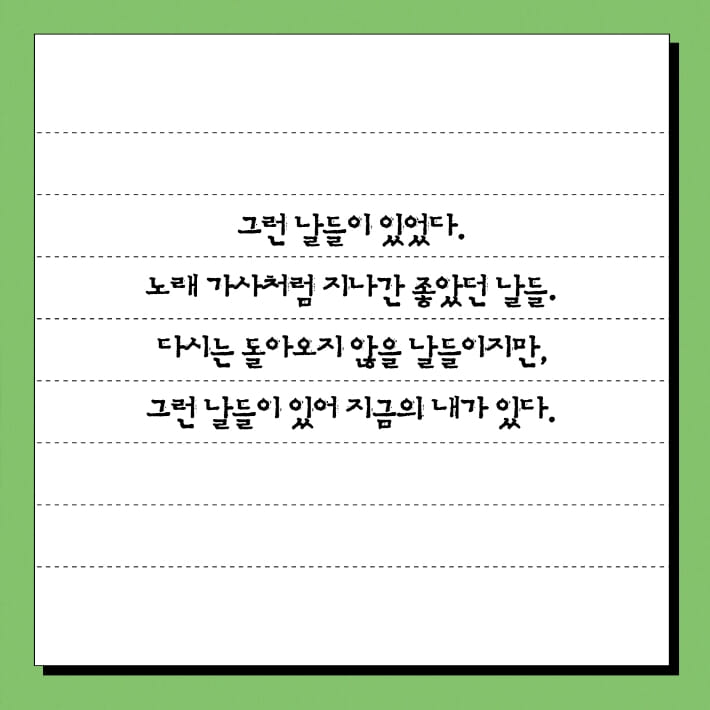 그런 날들이 있었다.
노래 가사처럼 지나간 좋았던 날들.
다시는 돌아오지 않을 날들이지만,
그런 날들이 있어 지금의 내가 있다.